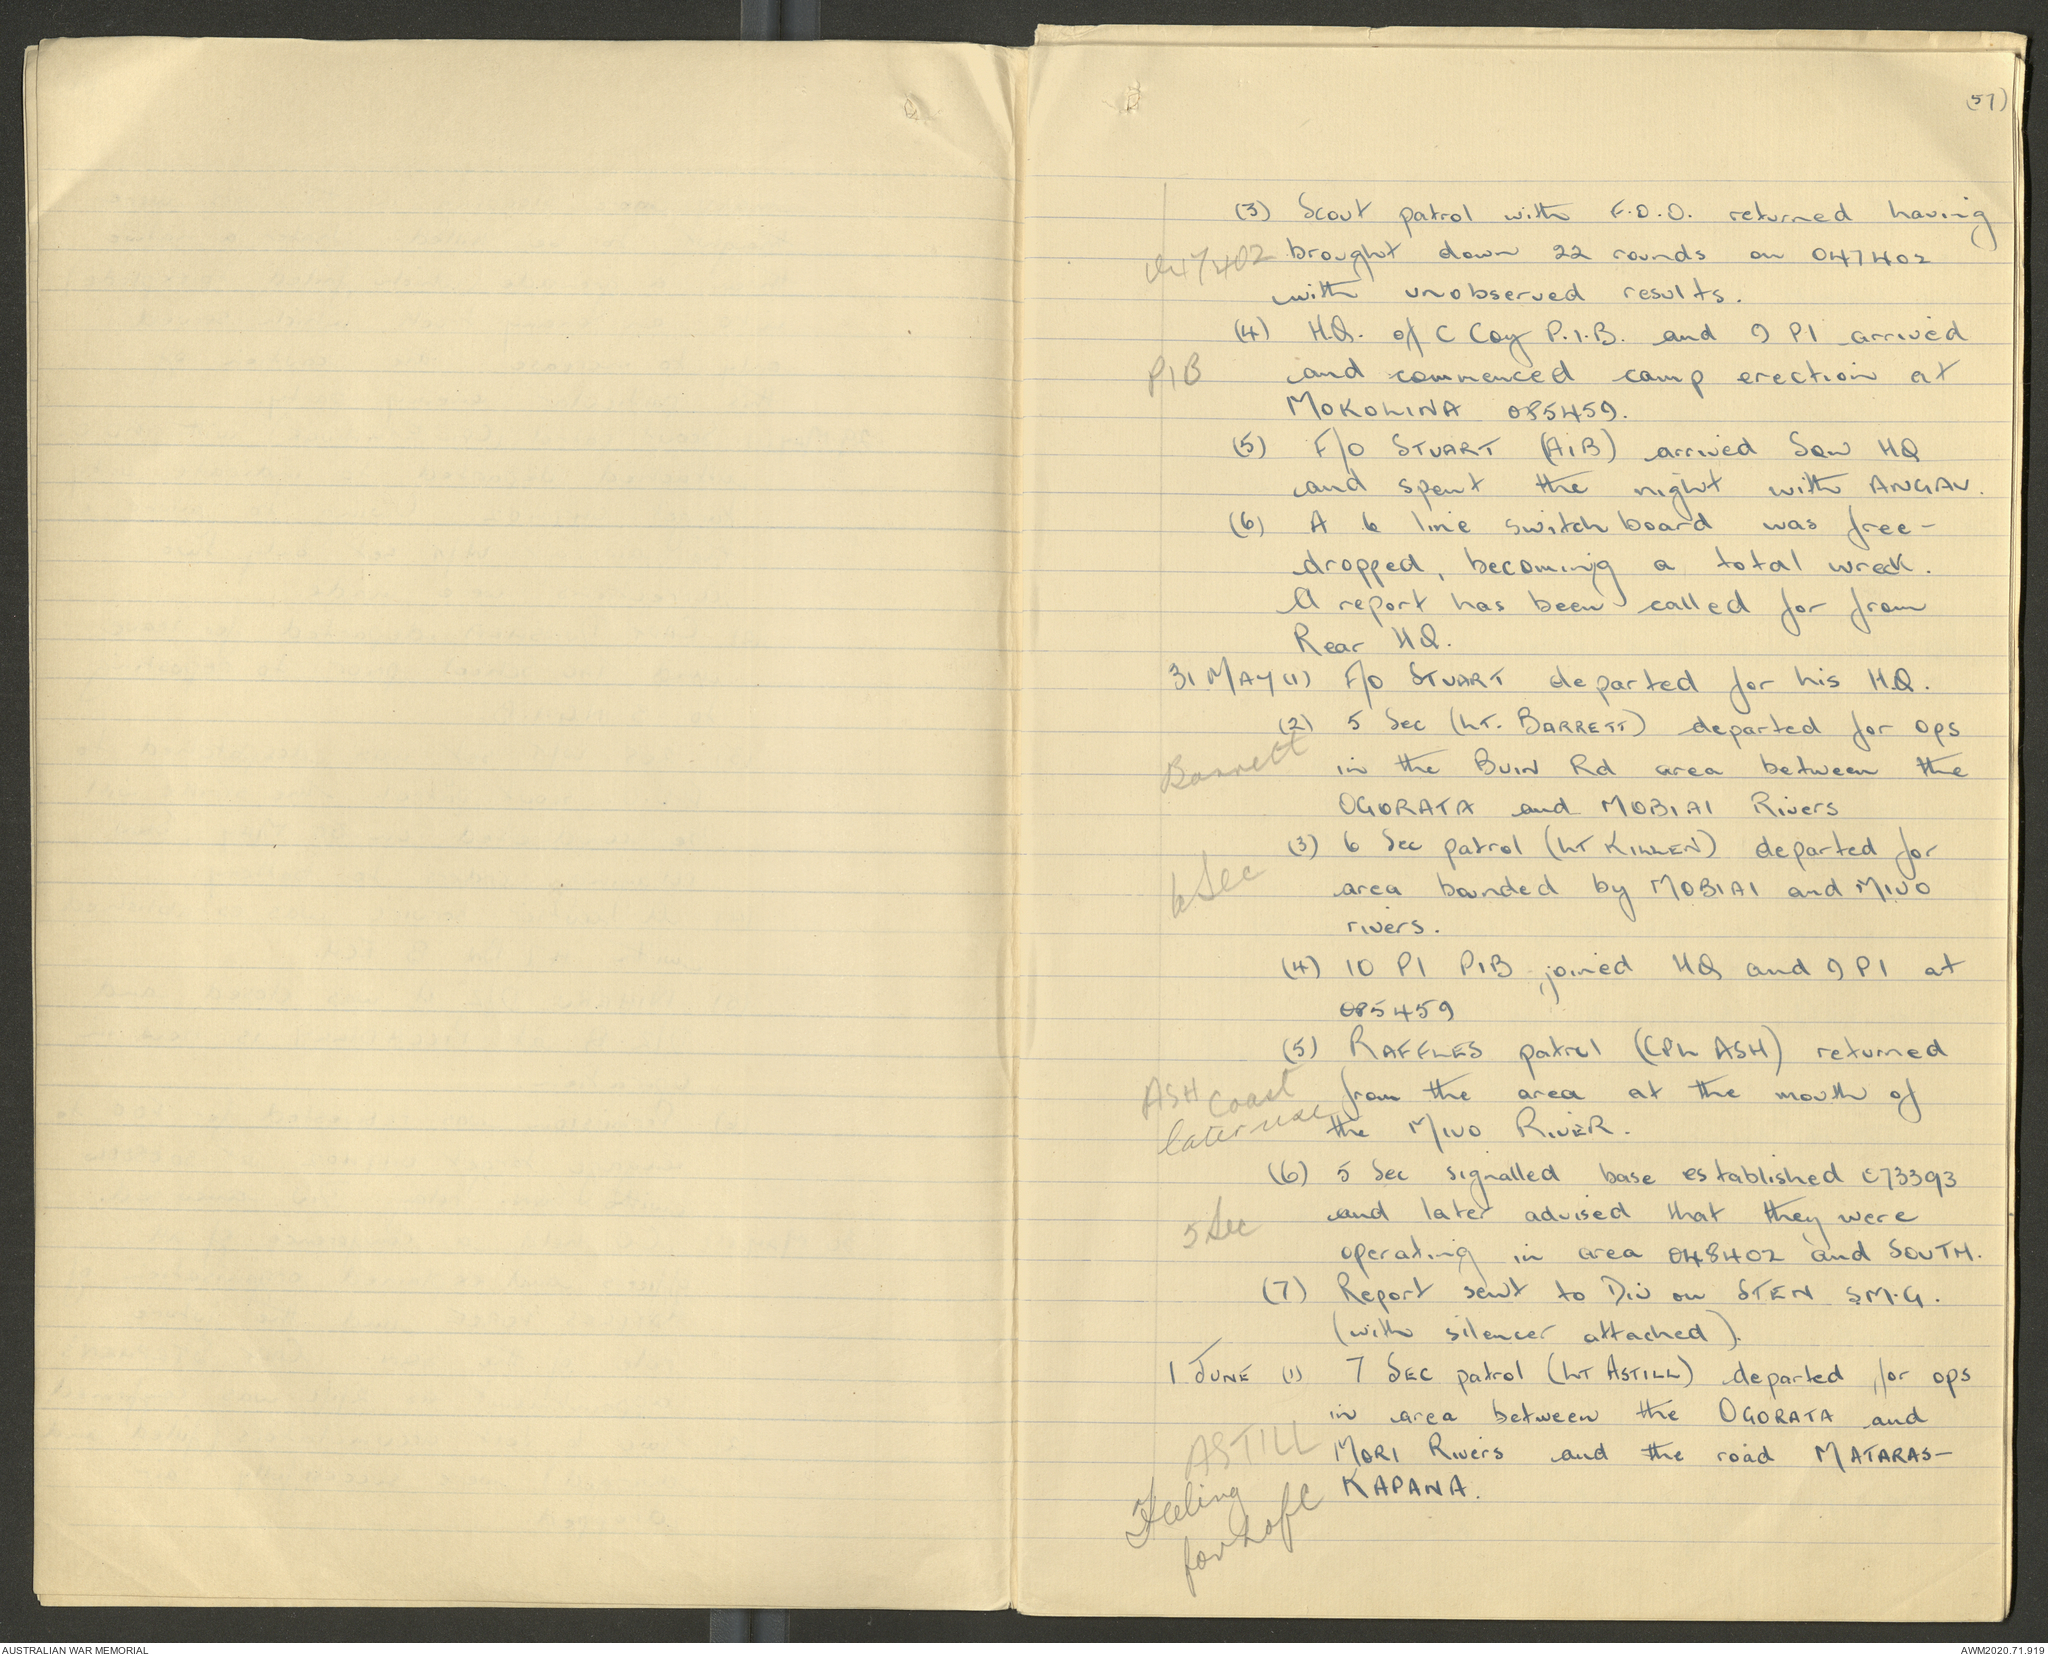 (57)
(3) Scout patrol with F.O.O. returned having
047402
brought down 22 rounds on 047402
with unobserved results.
(4) H.Q. of C Coy P.I.B. and 9 Pl arrived
PIB
and commenced camp erection at
MOKOLINA 085459.
(5) F/O STUART (AIB) arrived Sqn HQ
and spent the night with ANGAU.
(6) A 6 line switch board was free-
dropped, becoming a total wreck.
A report has been called for from
Rear HQ.
31 MAY (1) F/O STUART departed for his H.Q.
(2) 5 Sec (LT. BARRETT) departed for ops
Barrett
in the BUIN Rd area between the
OGORATA and MOBIAI Rivers
(3) 6 Sec patrol (LT KILLEN) departed for
6 Sec
area bounded by MOBIAI and MIVO
rivers.
(4) 10 Pl PIB joined HQ and 9 Pl at
085459
(5) RAFFLES patrol (CPL ASH) returned
ASH Coast
from the area at the mouth of
the MIVO RIVER.
(6) 5 Sec signalled base established 073393
5 Sec
and later advised that they were
operating in area 048402 and SOUTH.
(7) Report sent to Div on STEN S.M.G.
(with silencer attached).
1 JUNE (1) 7 SEC patrol (LT ASTILL) departed for ops
in area between the OGORATA and
ASTILL
MORI Rivers and the road MATARAS-
KAPANA.
Feeling
for
AUSTRALIAN WAR MEMORIAL
AWM2020.71.919